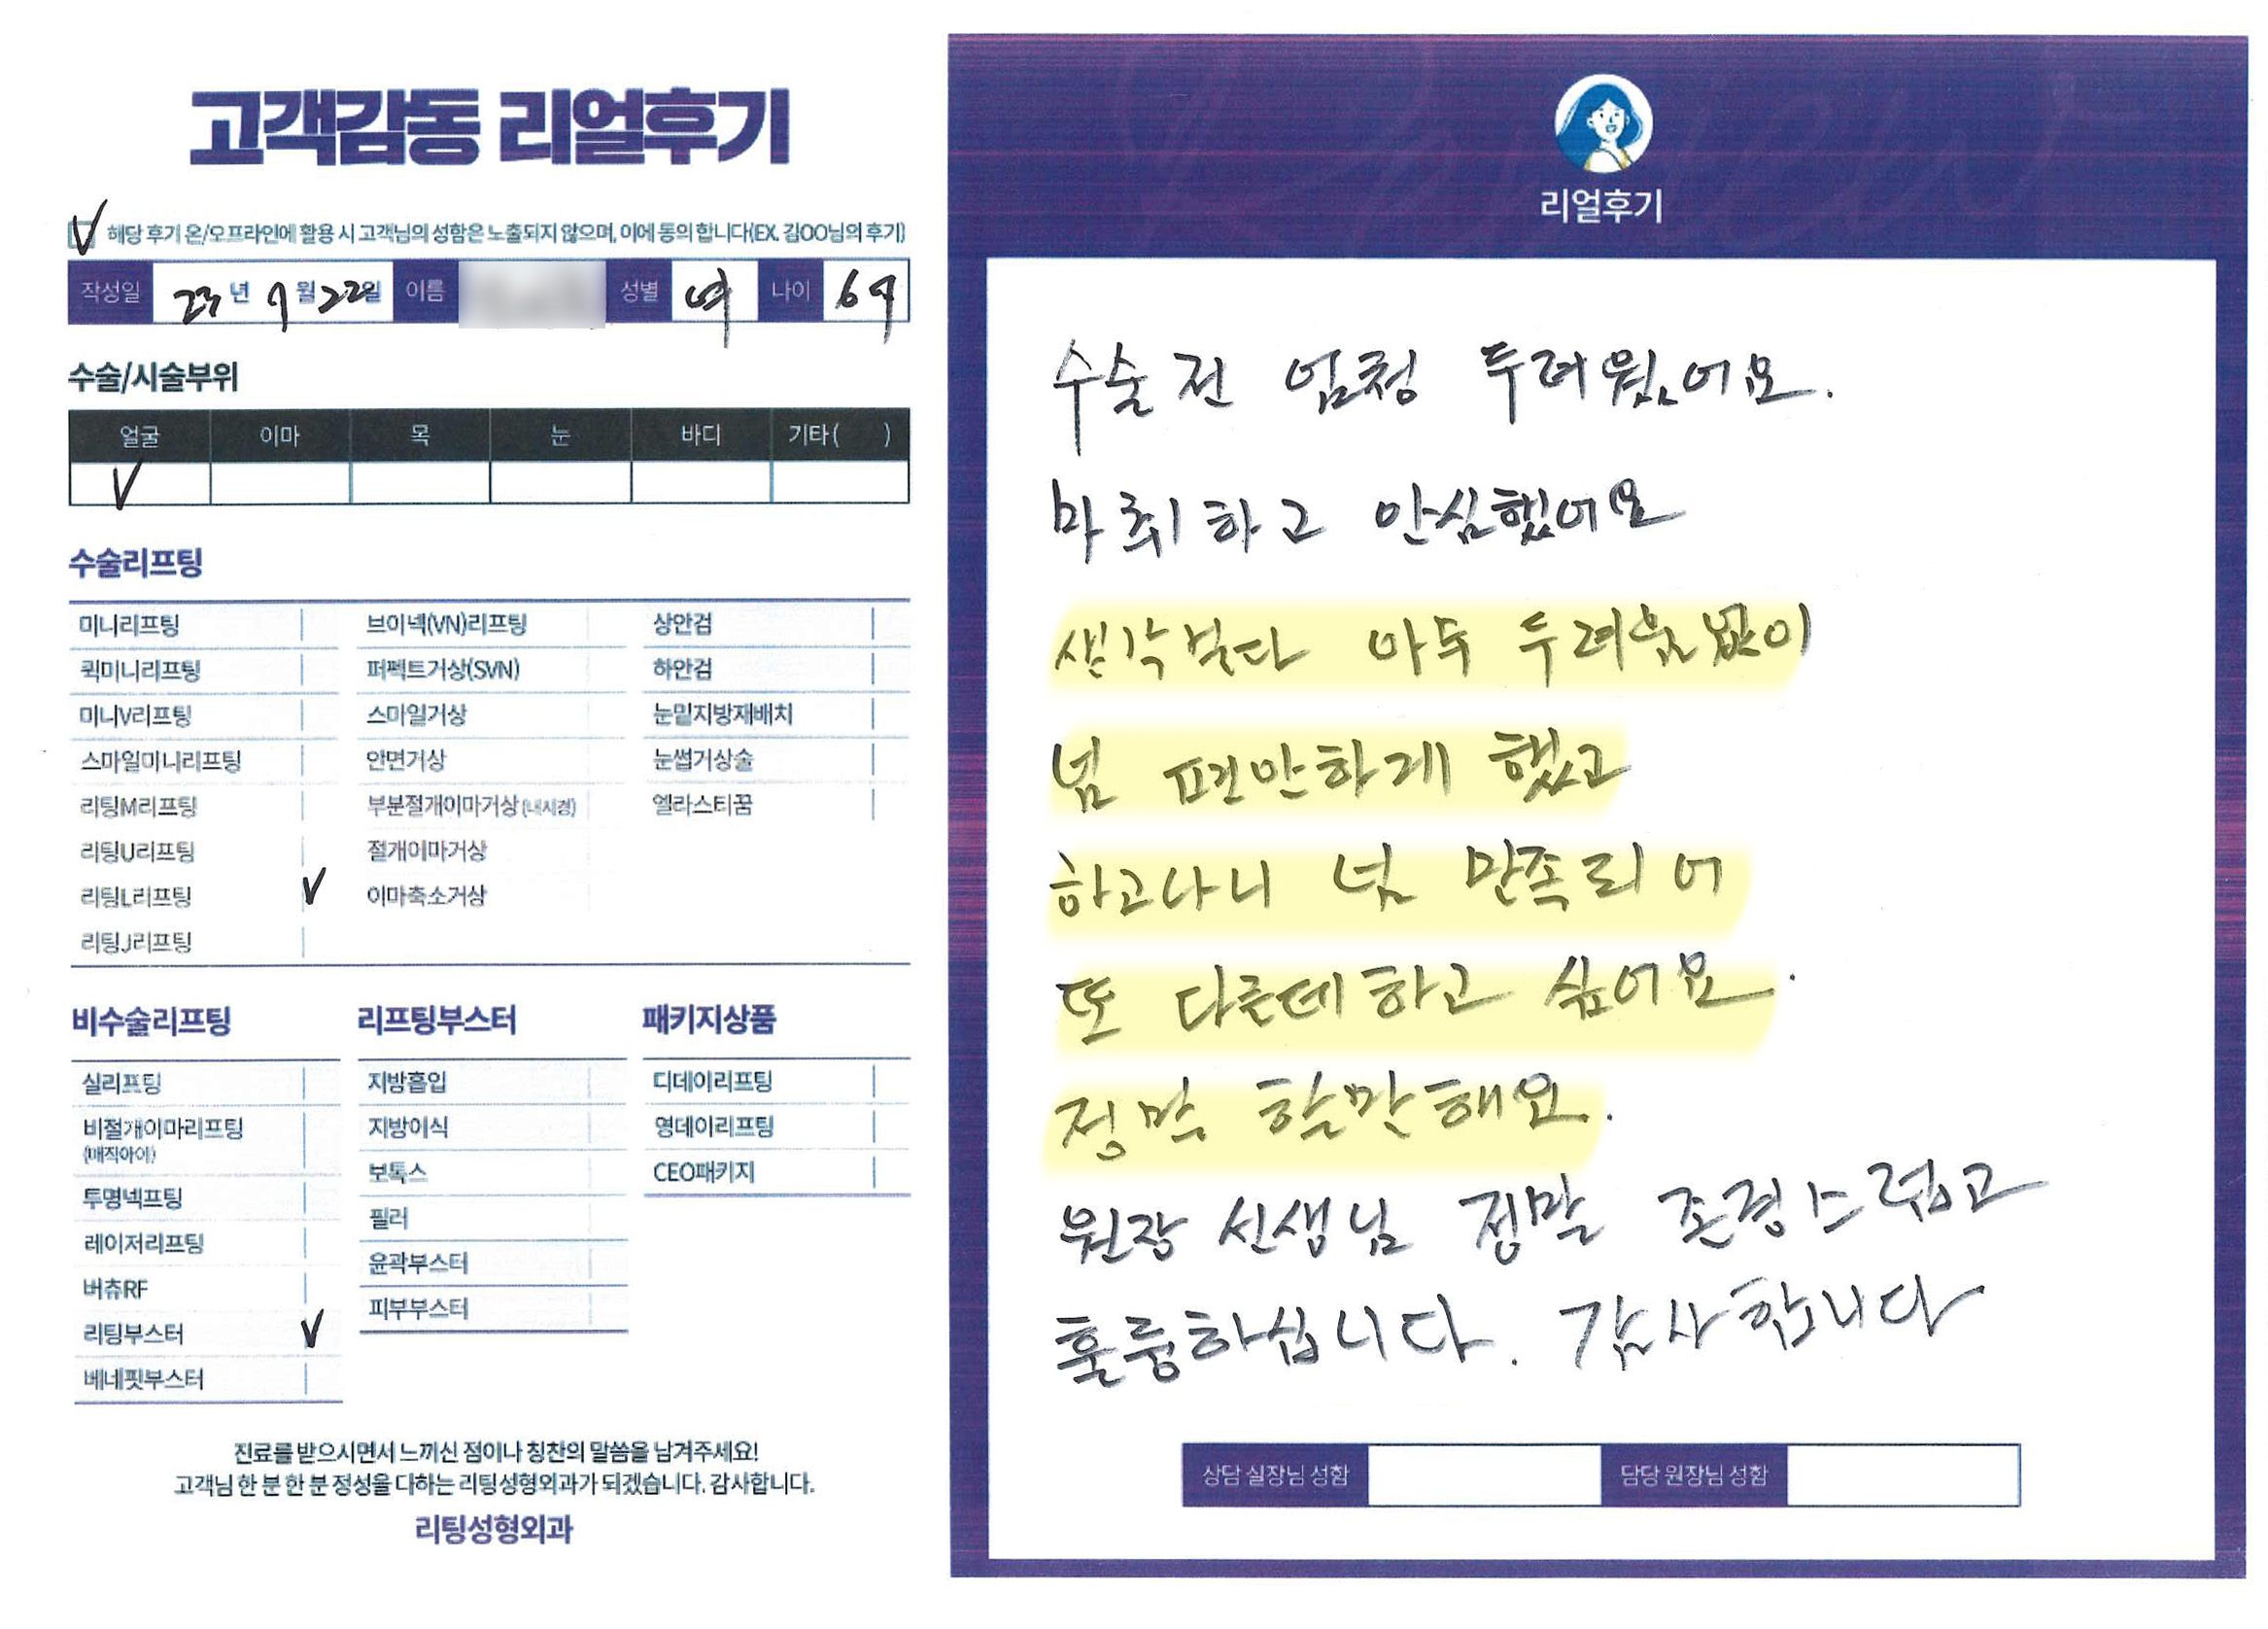 고객감동 리얼후기
해당 후기 온/오프라인에 활용 시 고객님의 성함은 노출되지 않으며, 이에 동의 합니다(EX. 김OO님의 후기)
작성일 23년 9월 22일 이름 성별 여 나이 69
수술/시술부위
얼굴 이마 목 눈 바디 기타( )
수술리프팅
미니리프팅 브이넥(VN)리프팅 상안검
퀵미니리프팅 퍼펙트거상(SVN) 하안검
미니V리프팅 스마일거상 눈밑지방재배치
스마일미니리프팅 안면거상 눈썹거상술
리팅M리프팅 부분절개이마거상(내시경) 엘라스티꿈
리팅U리프팅 절개이마거상
리팅L리프팅 이마축소거상
리팅J리프팅
비수술리프팅 리프팅부스터 패키지상품
실리프팅 지방흡입 디데이리프팅
비절개이마리프팅 지방이식 영데이리프팅
(매직아이)
보톡스 CEO패키지
투명넥프팅 필러
레이저리프팅 윤곽부스터
버츄RF 피부부스터
리팅부스터
베네핏부스터
진료를 받으시면서 느끼신 점이나 칭찬의 말씀을 남겨주세요!
고객님 한 분 한 분 정성을 다하는 리팅성형외과가 되겠습니다. 감사합니다.
리팅성형외과
리얼후기
수술전 엄청 두려웠어요.
마취하고 안심했어요
생각보다 아무 두려움없이
넘 편안하게 했고
하고나니 넘 만족되어
또 다른데하고 싶어요.
정말 할만해요.
원장 선생님 정말 존경스럽고
훌륭하십니다. 감사합니다
상담 실장님 성함 담당 원장님 성함